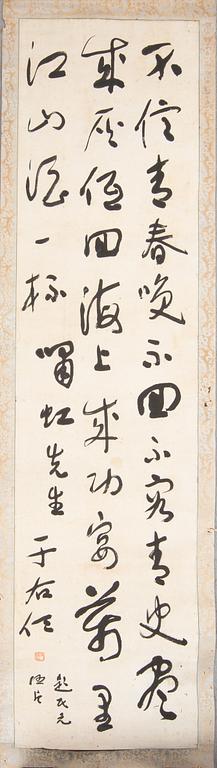 不信青春喚不回不容青史盡
成灰低回海上成功宴萬里
江山酒一杯 嘯虹先生 于右任
民元